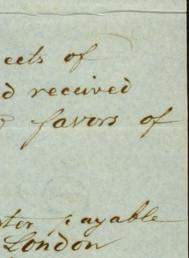 ects of
d received
& favors of
ter, payable
London